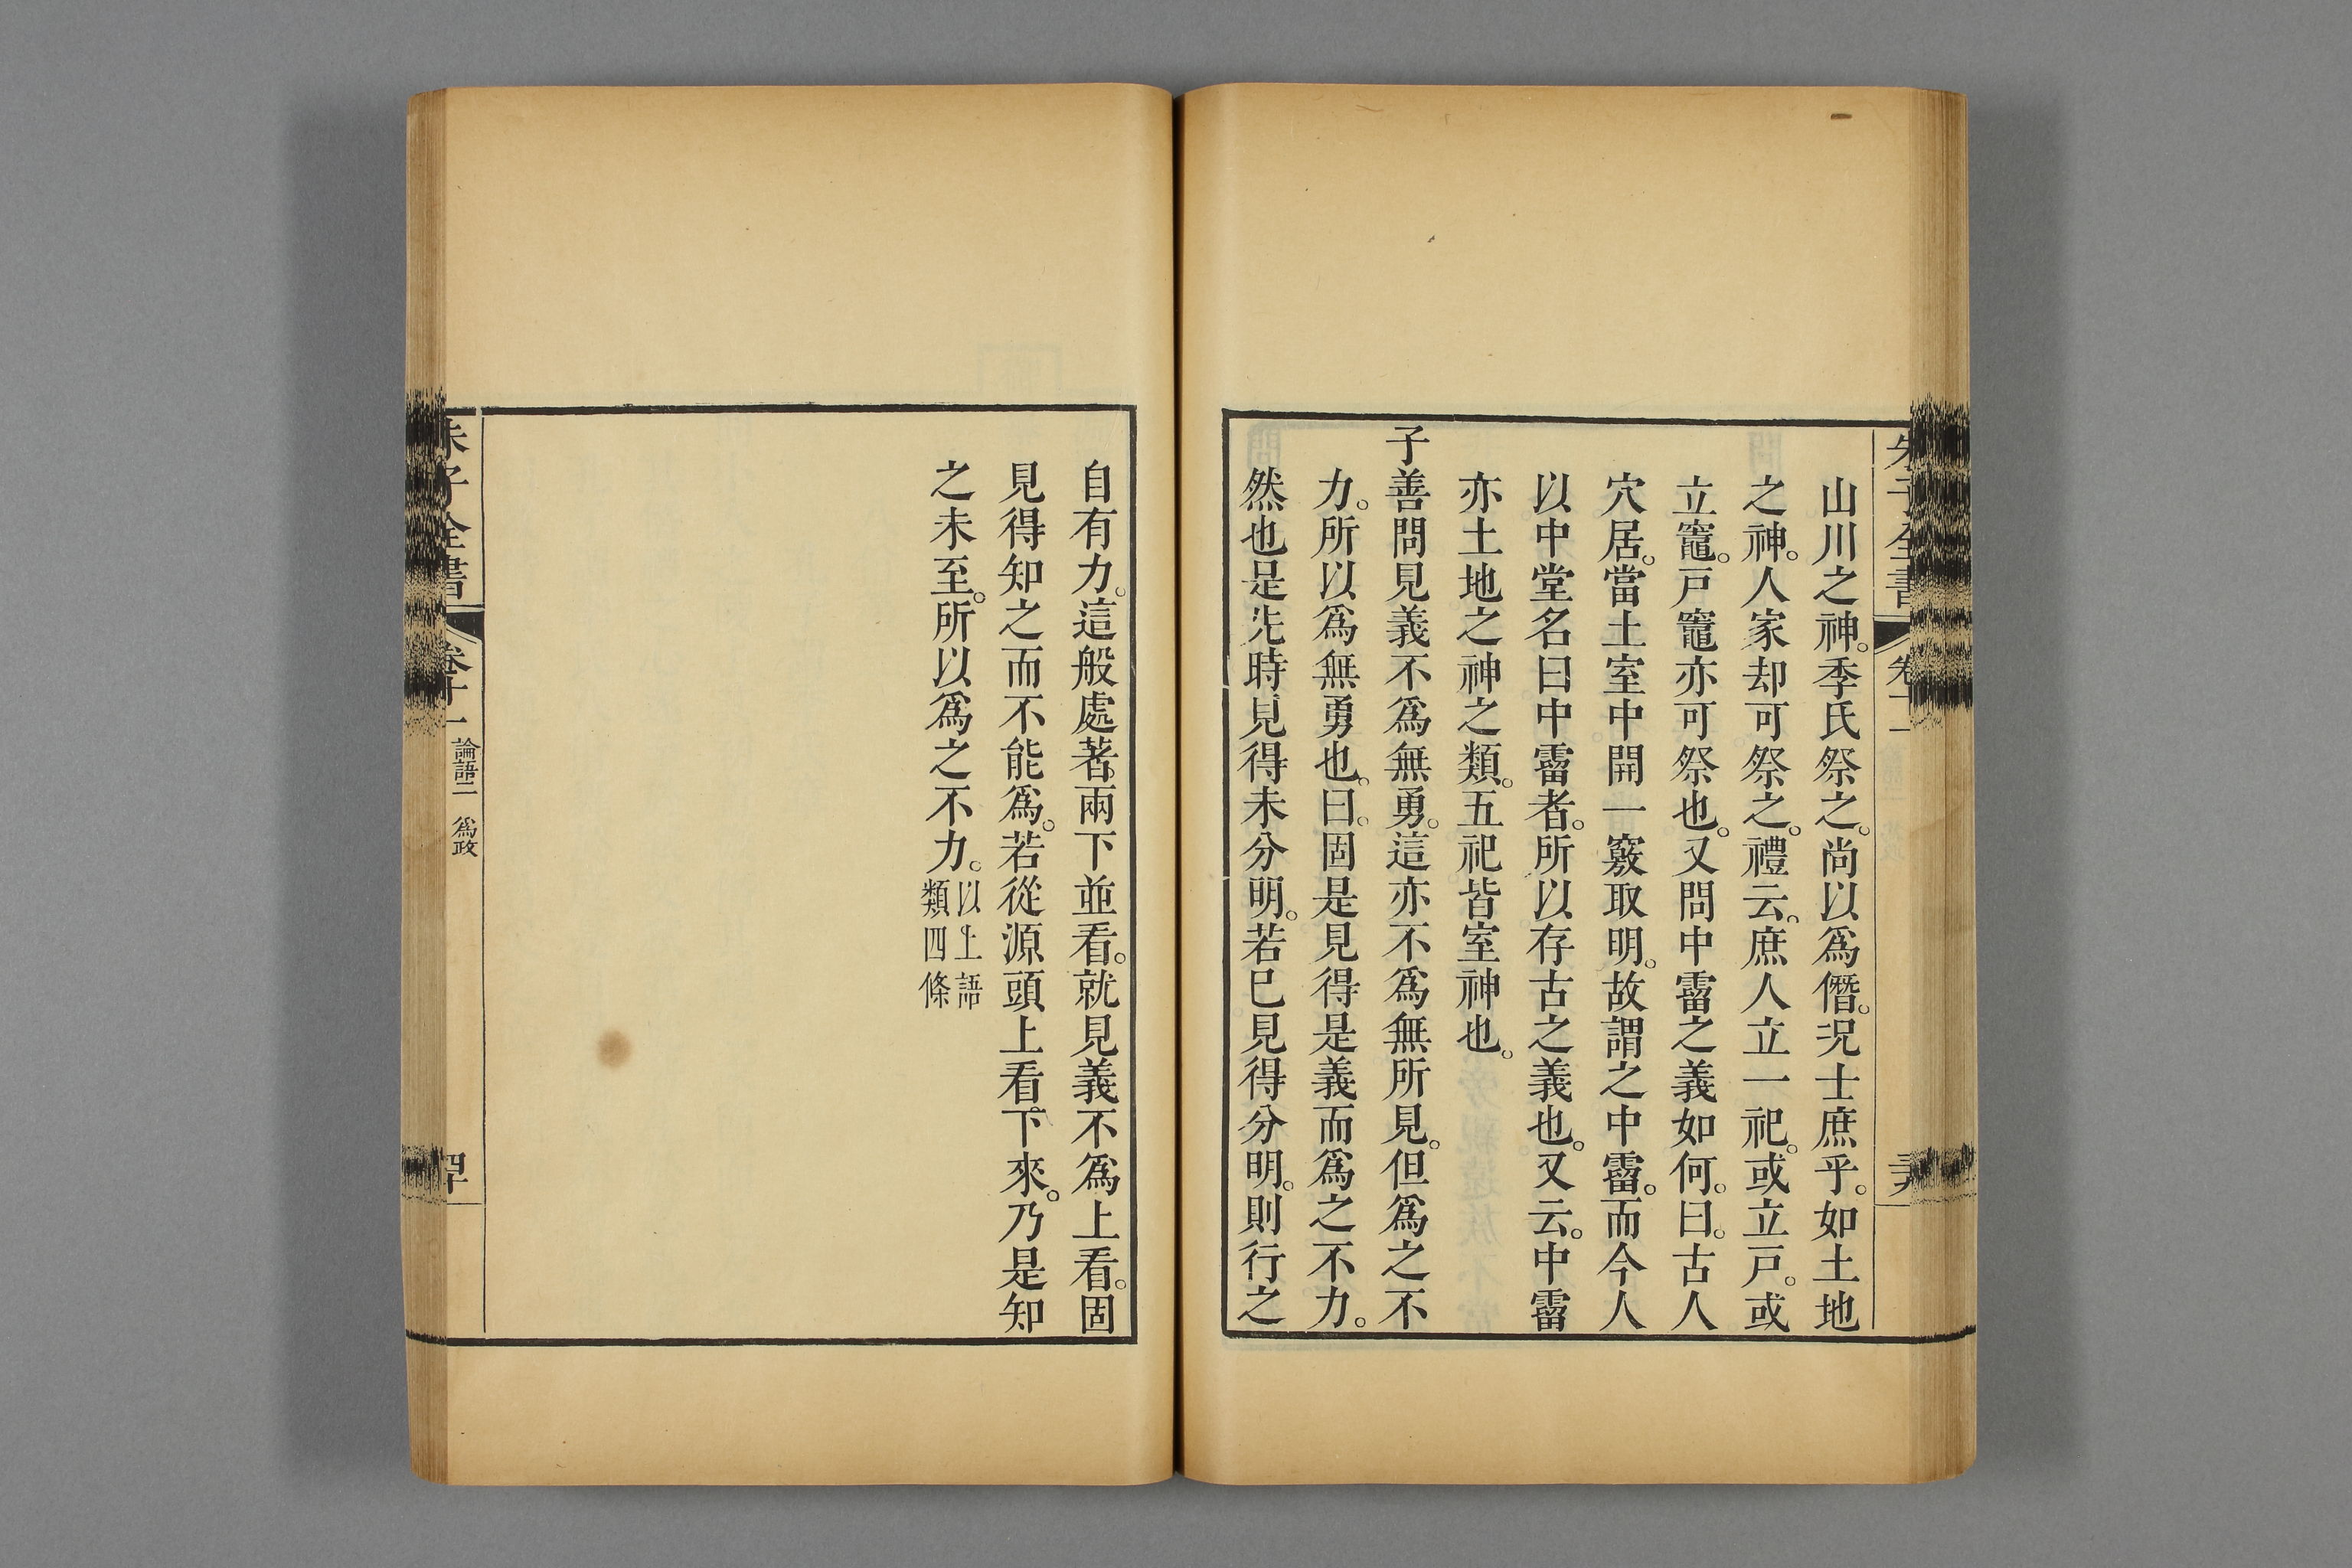 朱子全書 卷十一 三九
山川之神。季氏祭之。尚以爲僭。況士庶乎。如土地
之神。人家却可祭之。禮云。庶人立一祀。或立戶。或
立竈。戶竈亦可祭也。又問中霤之義如何。曰。古人
穴居。當土室中開一竅取明。故謂之中霤。而今人
以中堂名曰中霤者。所以存古之義也。又云。中霤
亦土地之神之類。五祀皆室神也。
子善問見義不爲無勇。這亦不爲無所見。但爲之不
力。所以爲無勇也。曰。固是見得是義而爲之不力。
然也是先時見得未分明。若已見得分明。則行之
自有力。這般處著。兩下並看。就見義不爲上看。固
見得知之而不能爲。若從源頭上看下來。乃是知
之未至。所以爲之不力。以上語
類四條
朱子全書 卷十一 論語二 爲政 四十